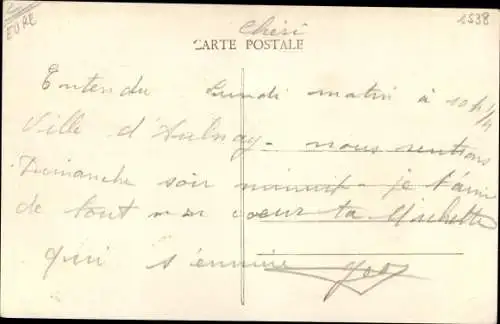 EURE
1538
Chéri
CARTE POSTALE
Entendu Lundi matin à 10h 1/4
Ville d'Aulnay - nous rentrons
Dimanche soir minuit - je t'aime
de tout mon coeur ta Michette
qui s'ennuie